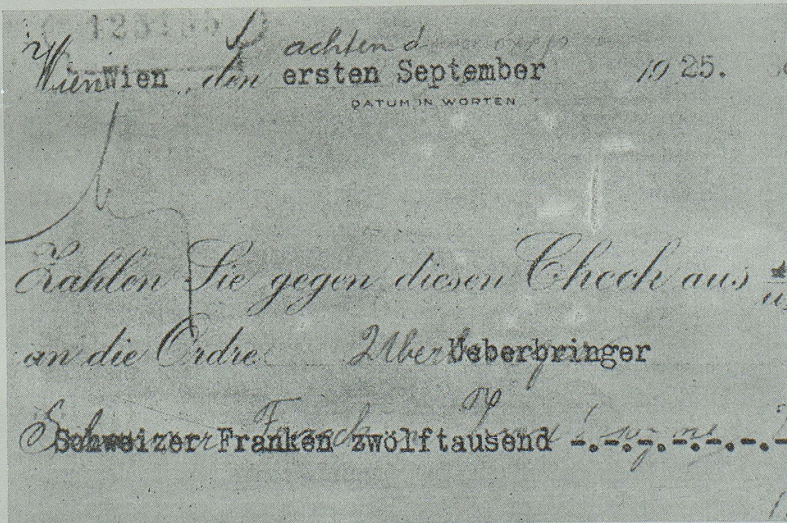 achten d
Wien Wien, den ersten September 1925.
DATUM IN WORTEN
Zahlen Sie gegen diesen Check aus
an die Ordre Ueberbringer
Schweizer Franken zwölftausend -.-.-.-.-.-.-